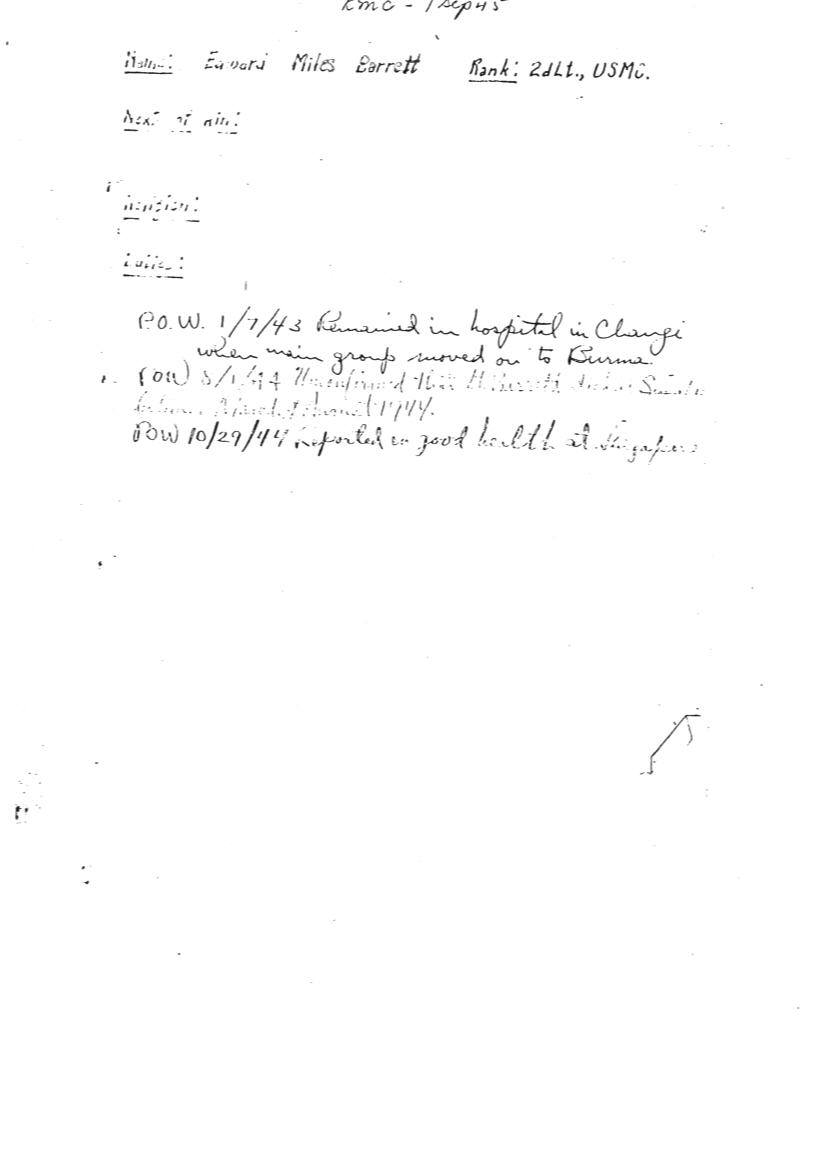 RMC - 1 Sep 45
Name: Edward Miles Barrett Rank: 2dLt., USMC.
Next of Kin:
P.O.W. 1/7/43 Remained in hospital in Changi
when main group moved on to Burma.
POW Unconfirmed that
1944.
POW 10/29/44 Reported in good health at Singapore